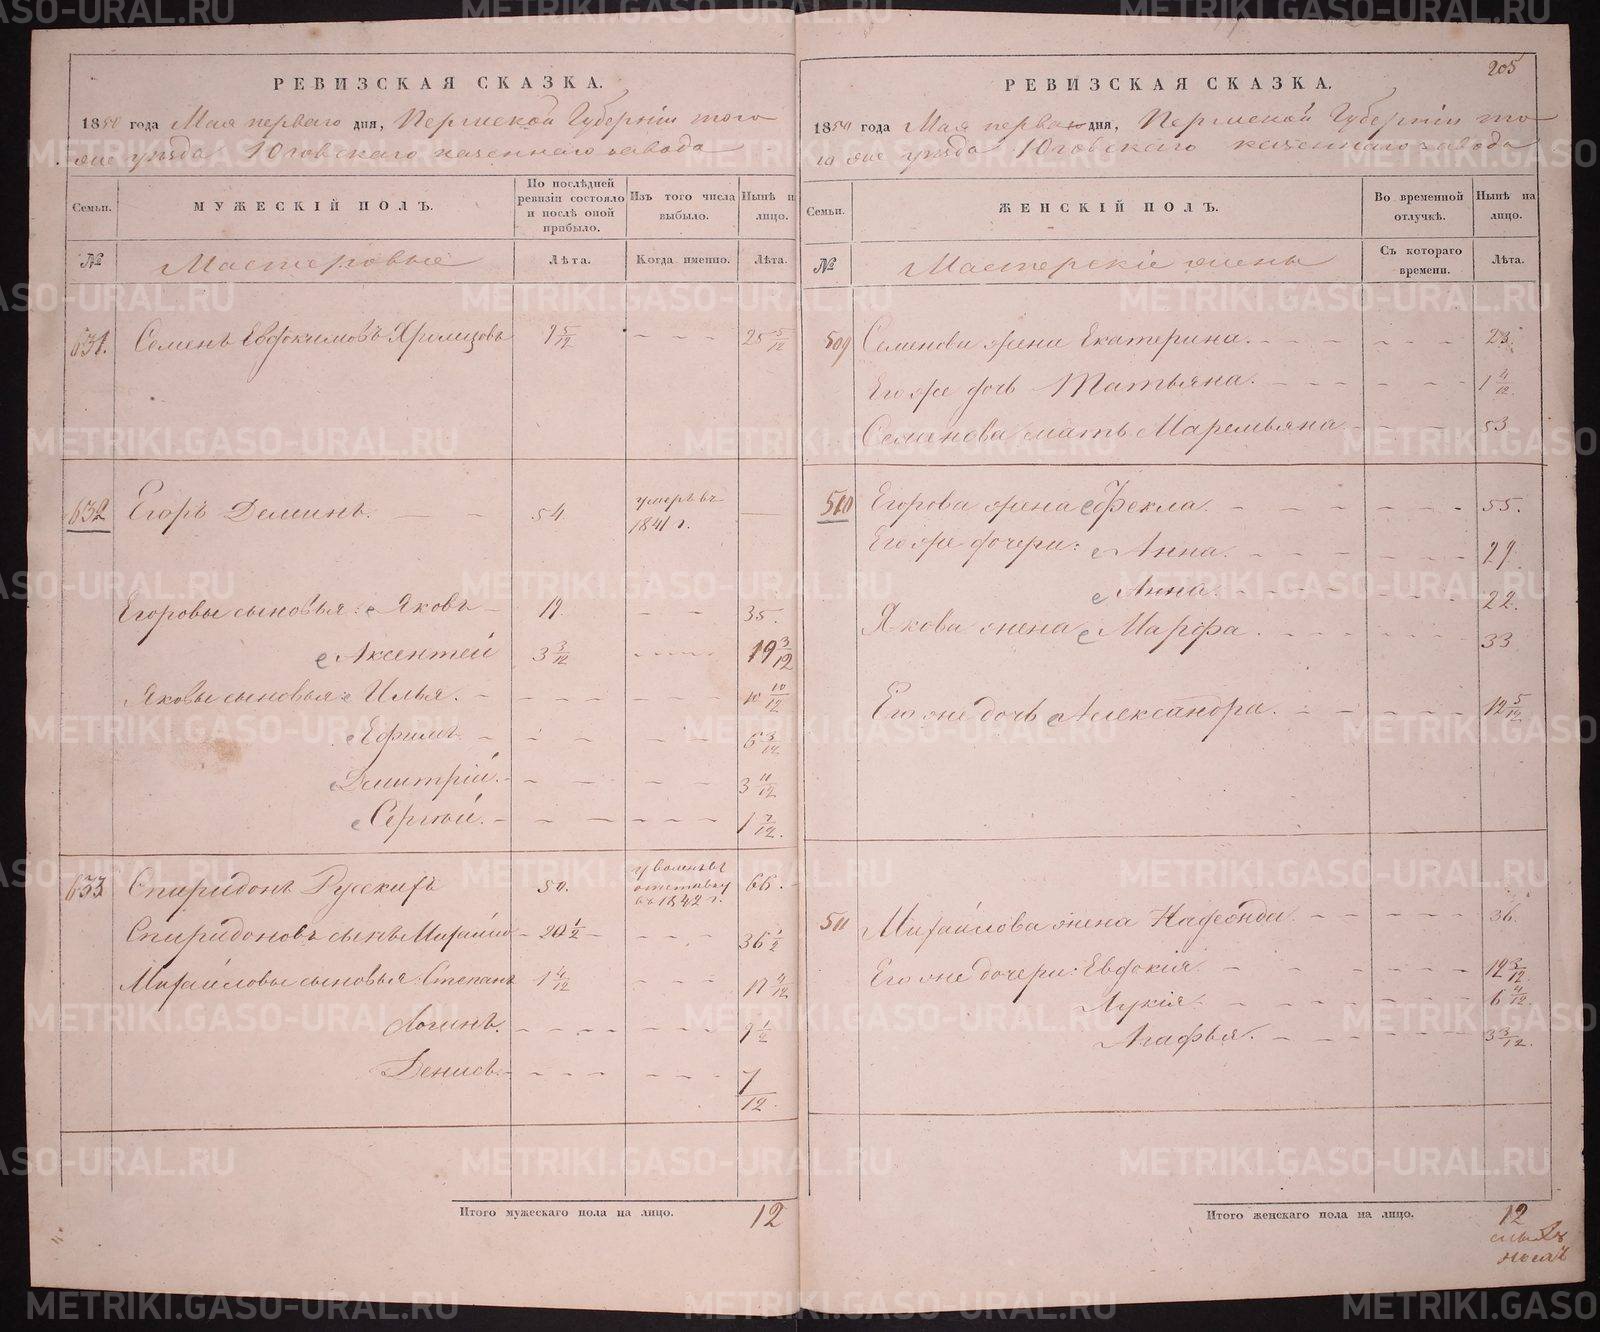 РЕВИЗСКАЯ СКАЗКА.
1850 года Мая перваго дня, Пермской Губерніи того
же уѣзда Юговскаго казеннаго завода
Семьи.
МУЖЕСКІЙ ПОЛЪ.
По послѣдней ревизіи состояло и послѣ оной прибыло.
Изъ того числа выбыло.
Нынѣ на лицо.
№
Мастеровые
Лѣта.
Когда именно.
Лѣта.
631. Семенъ Евдокимовъ Хромцовъ 9 5/12 - - - 25 5/12
632 Егоръ Деминъ. - - 54 умеръ въ 1841 г. —
Егоровы сыновья: Яковъ - 19. - - 35.
Аксентей 3 3/12 - - - 19 3/12
Яковы сыновья: Илья. - - - - - 10 10/12
Ефимъ - - - - - 6 3/12
Дмитрій. - - - - - 3 11/12
Сергѣй. - - - - - 1 7/12.
633 Спиридонъ Русскихъ 50. уволенъ въ отставку въ 1842 г. 66.
Спиридоновъ сынъ Михайло - 20 1/2 - - - - 36 1/2
Михайловы сыновья: Степанъ 1 4/12 - - - 17 4/12
Логинъ. - - - - - 9 1/2
Денисъ. - - - - - 7/12.
Итого мужескаго пола на лицо. 12
205
РЕВИЗСКАЯ СКАЗКА.
1850 года Мая перваго дня, Пермской Губерніи то
го же уѣзда Юговскаго казеннаго завода
Семьи.
ЖЕНСКІЙ ПОЛЪ.
Во временной отлучкѣ.
Нынѣ на лицо.
№
Мастерскіе жены
Съ котораго времени.
Лѣта.
509 Семенова жена Екатерина. - - - - - 23.
Его же дочь Татьяна. - - - - - 1 4/12
Семенова мать Маремьяна. - - - 53
510 Егорова жена Фекла. - - - - - 55.
Его же дочери: Анна. - - - - - 29.
Анна. - - - - - 22.
Якова жена Марфа. - - - - - 33
Его же дочь Александра. - - - - - 12 5/12.
511 Михайлова жена - - - - - 36.
Его же дочери: Евдокія. - - - - - 12 3/12.
Лукія. - - - - - 6 4/12.
Агафья. - - - - - 3 3/12.
Итого женскаго пола на лицо. 12